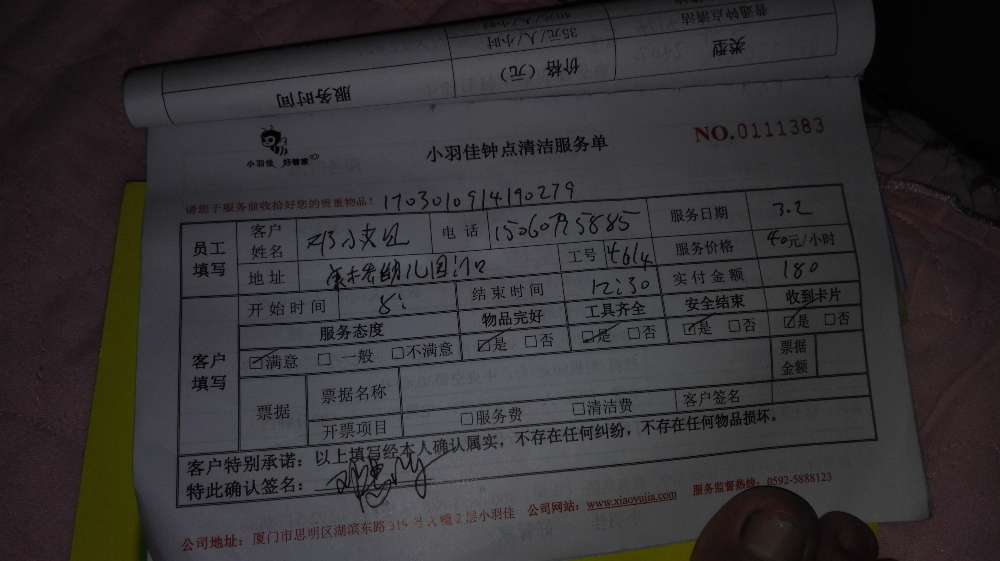 普通钟点清洁
35元/人/小时
类型 价格（元） 服务时间
小羽佳 好管家
小羽佳钟点清洁服务单
NO.0111383
请您于服务前收拾好您的贵重物品！ 1703010914190279
员工填写 客户姓名 电话 服务日期 3.2
地址 幼儿园门口 工号 4614 服务价格 40元/小时
客户填写 开始时间 8: 结束时间 12:30 实付金额 180
服务态度 物品完好 工具齐全 安全结束 收到卡片
☑满意 □一般 □不满意 ☑是 □否 ☑是 □否 ☑是 □否 ☑是 □否
票据 票据名称 票据金额
开票项目 □服务费 □清洁费 客户签名
客户特别承诺：以上填写经本人确认属实，不存在任何纠纷，不存在任何物品损坏。
特此确认签名：
公司地址：厦门市思明区湖滨东路319号 2层小羽佳 公司网站：www.xiaoyujia.com 服务监督热线：0592-5888123